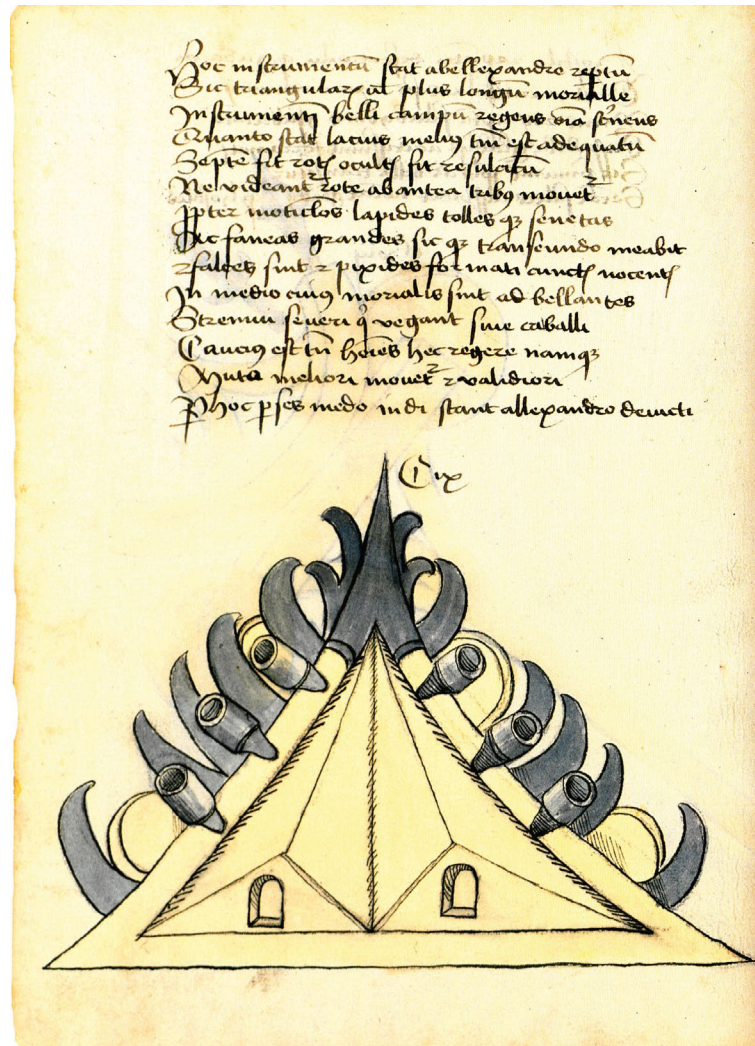 Hoc instrumentū stat abellexandro reptū
Sic triangular at plus longū morialle
Instrumentū belli campū regens viā st'nens
Quanto stat lacius melius tm̄ est adequatū
Septē fit rot ocult fit resulatū
Ne videantr rote abantea tribꝫ mouetr
Ppter moticlos lapides tolles qꝫ senetas
Ac faneas grandes sic qꝫ transeundo meabit
falces sint ꝛ pixides formati cunct nocent
In medio cuius morialis sint ad bellantes
Strenui seueri q vegant siue caballi
Caucius est tn̄ hoīes hec regere namqꝫ
meliori mouetr ꝛ validiori
P hoc pses medo indi stant allexandro deuicti